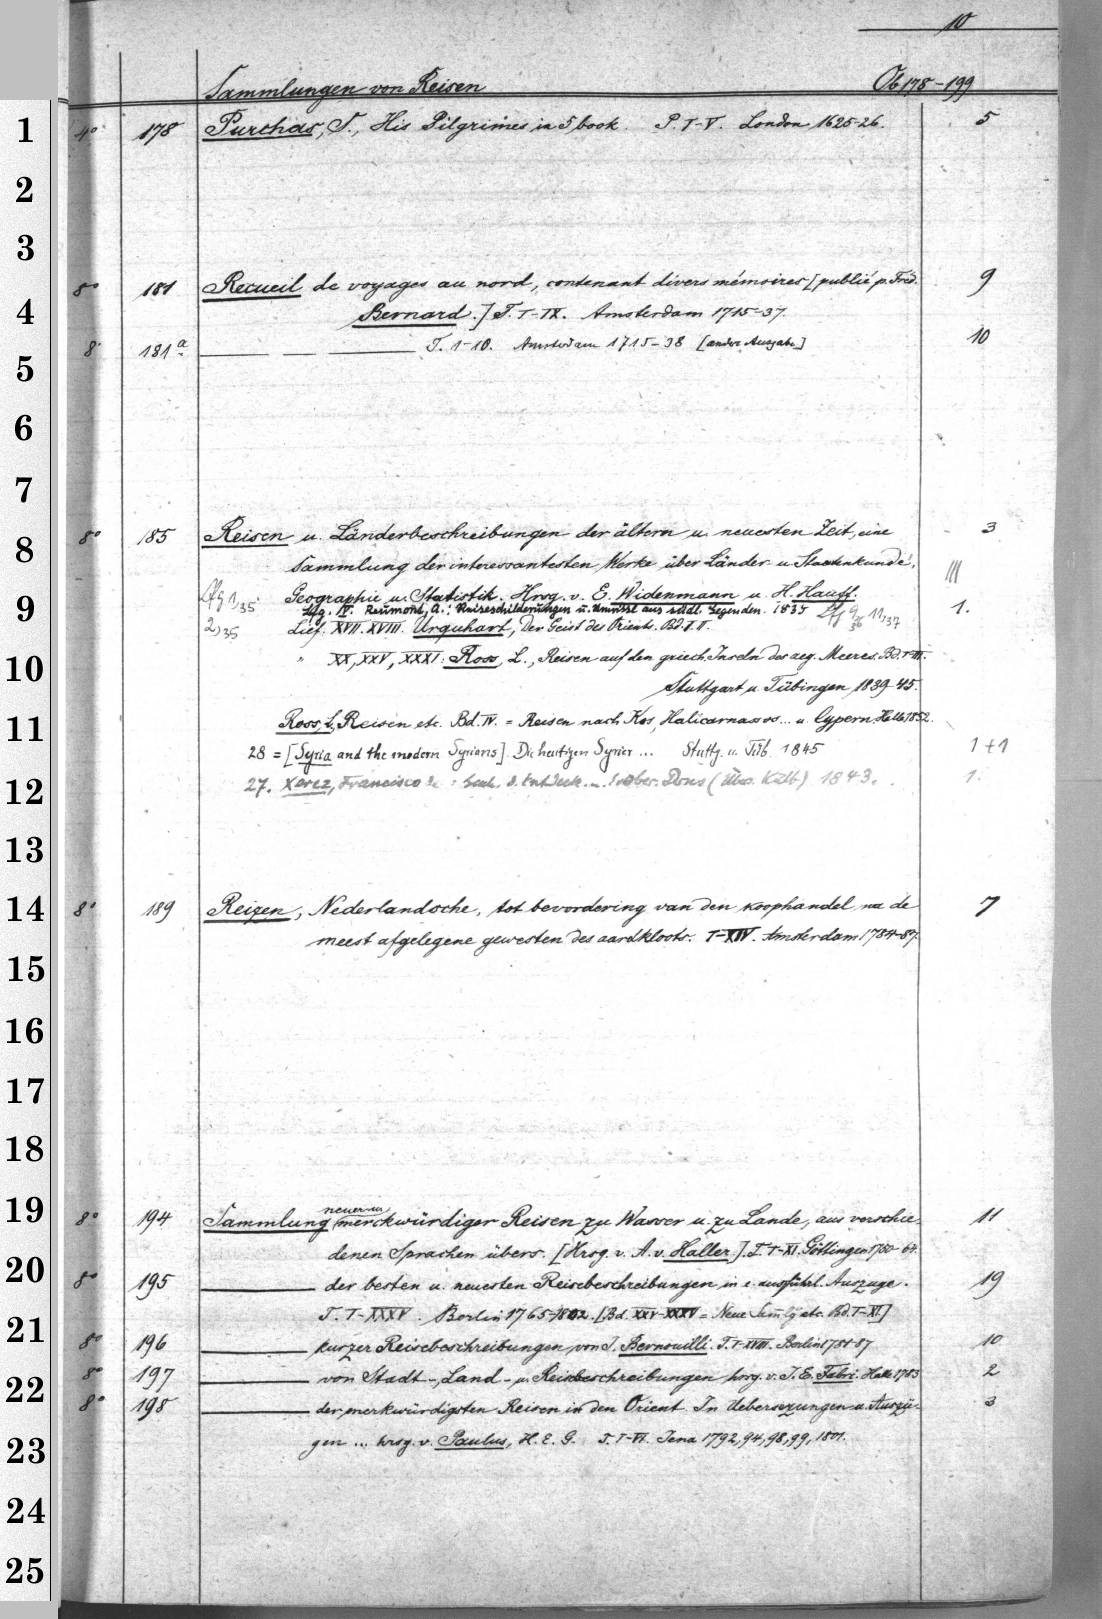 10
Sammlungen von Reisen Ob 178-199
1 4° 178 Purchas, S., His Pilgrimes in 5 book. P. I-V. London 1625-26. 5
2
3
8° 181 Recueil de voyages au nord, contenant divers mémoires [publié p. Fréd. 9
4 Bernard.] T. I-IX. Amsterdam 1715-37.
8° 181a T. 1-10. Amsterdam 1715-38 [andre Ausgabe] 10
5
6
7
8° 185 Reisen u. Länderbeschreibungen der ältern u. neuesten Zeit, eine 3
8 Sammlung der interessantesten Werke über Länder- u Staatenkunde,
Lfg 1,35 Geographie u. Statistik. Hrsg. v. E. Widenmann u. H. Hauff. III
9 Lfg. IV. Reumont, A.: Reiseschilderungen u. Umrisse aus südl. Gegenden. 1835 1.
2,35 Lief. XVII. XVIII. Urquhart, Der Geist des Orients. Bd. I. II.
10 " XX, XXV, XXXI: Ross, L., Reisen auf den griech. Inseln des aeg. Meeres. Bd. I-III.
Stuttgart u. Tübingen 1839-45.
11 Ross, L, Reisen etc. Bd. IV. = Reisen nach Kos, Halicarnassos... u. Cypern, Halle 1852.
28 = [Syria and the modern Syrians]. Die heutigen Syrier ... Stuttg. u. Tüb. 1845 1+1
12 27. Xerez, Francisco de: 1843. 1.
13
14 8° 189 Reizen, Nederlandsche, tot bevordering van den koophandel, na de 7
meest afgelegene gewesten des aardkloots. I-XIV. Amsterdam 1784-87.
15
16
17
18
neuer u.
19 8° 194 Sammlung merckwürdiger Reisen zu Wasser u. zu Lande, aus verschie- 11
denen Sprachen übers. [Hrsg. v. A. v. Haller.] T. I-XI. Göttingen 1750-64.
20 8° 195 der besten u. neuesten Reisebeschreibungen in e. ausführl. Auszuge. 19
T. I-XXXV. Berlin 1765-1802. [Bd. XXV-XXXV = Neue Sammlg etc. Bd. I-XI.]
21 8° 196 kurzer Reisebeschreibungen von J. Bernouilli. T. I-XVIII. Berlin 1781-87 10
8° 197 von Stadt-, Land- u. Reisebeschreibungen hrsg. v. J. E. Fabri. Halle 1783 2
22 8° 198 der merkwürdigsten Reisen in den Orient. In Uebersezungen u. Auszü- 3
23 gen ... hrsg. v. Paulus, H. E. G. T. I-VI. Jena 1792, 94, 98, 99, 1801.
24
25